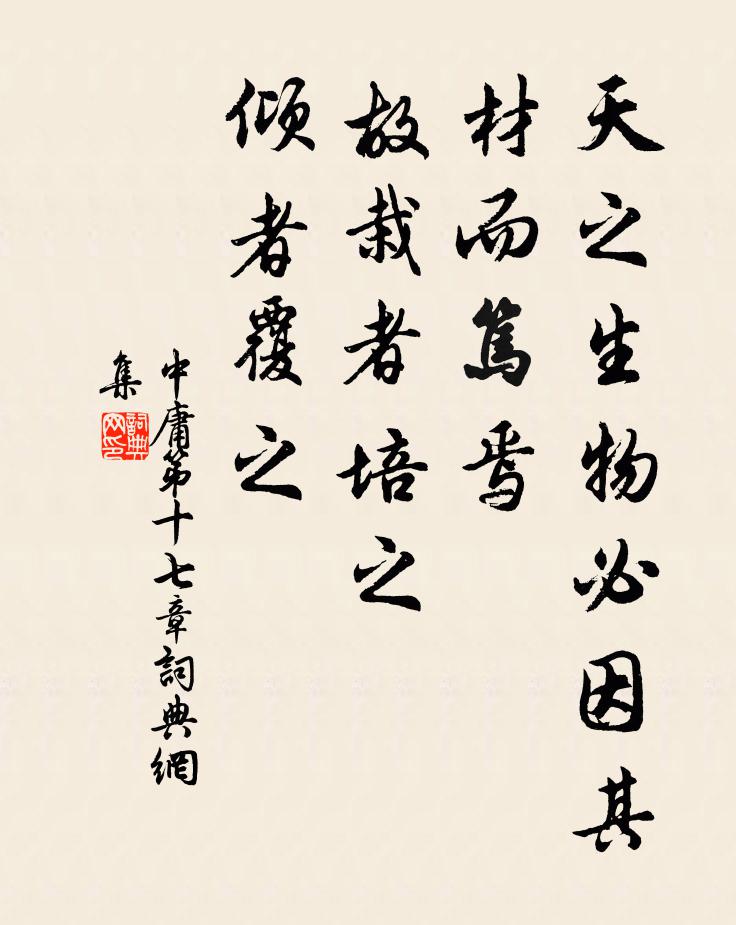 天之生物必因其
材而篤焉
故栽者培之
傾者覆之
中庸第十七章詞典網
集
詞典
网印